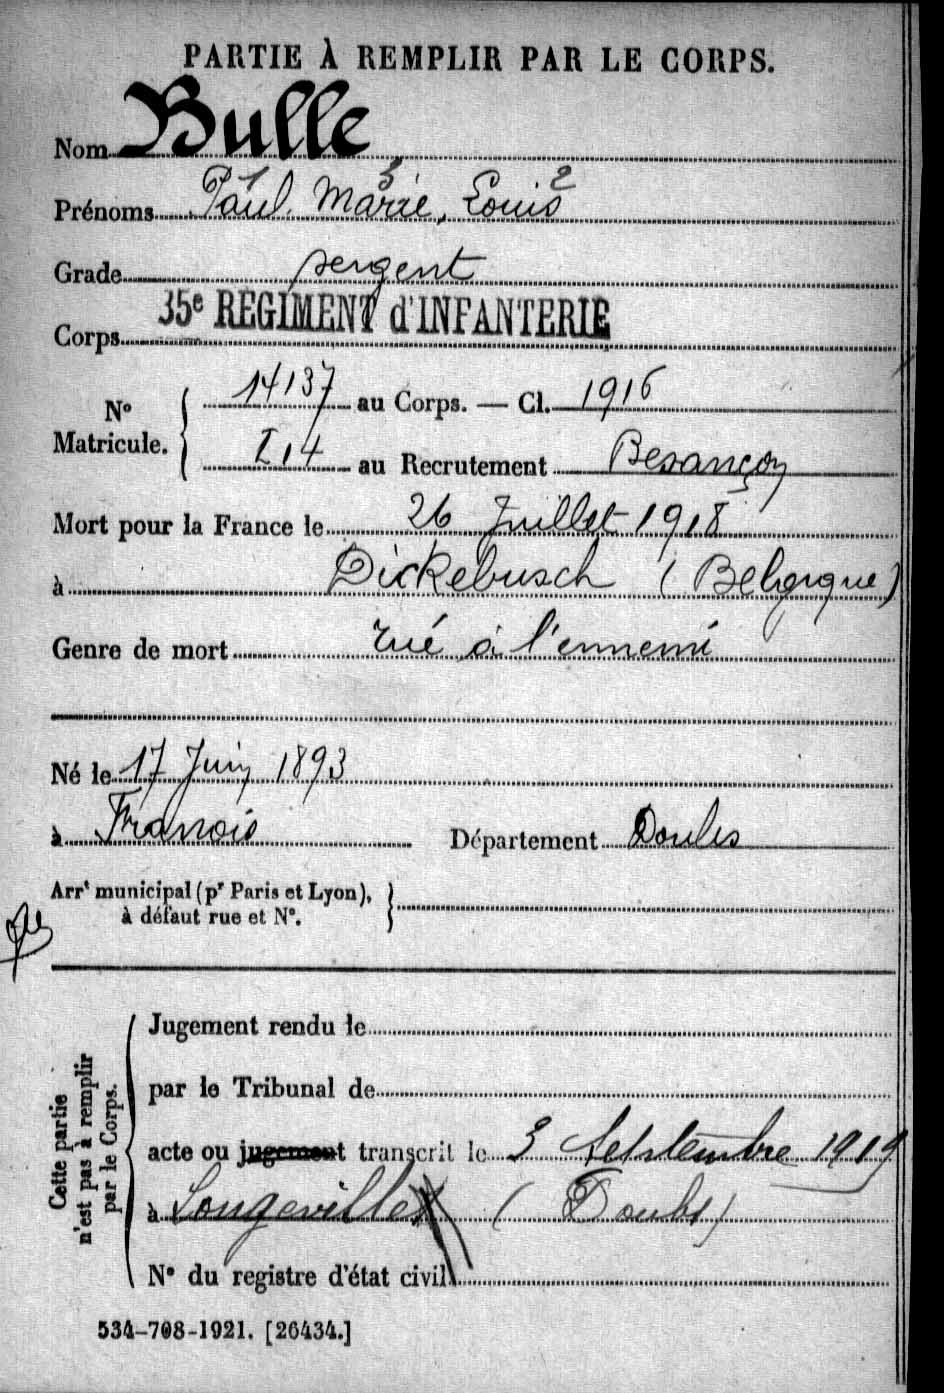 PARTIE À REMPLIR PAR LE CORPS.
Nom Bulle
Prénoms Paul, Marie, Louis
1 3 2
Grade sergent
Corps 35e REGIMENT d'INFANTERIE
N° Matricule. 14137 au Corps. — Cl. 1916
114 au Recrutement Besançon
Mort pour la France le 26 Juillet 1918
à Dickebusch (Belgique)
Genre de mort tué à l'ennemi
Né le 17 Juin 1893
à Franois Département Doubs
Arrt municipal (pr Paris et Lyon),
à défaut rue et N°.
Cette partie
n'est pas à remplir
par le Corps.
Jugement rendu le
par le Tribunal de
acte ou jugement transcrit le 3 Septembre 1919
à Longeville (Doubs)
N° du registre d'état civil
534-708-1921. [26434.]